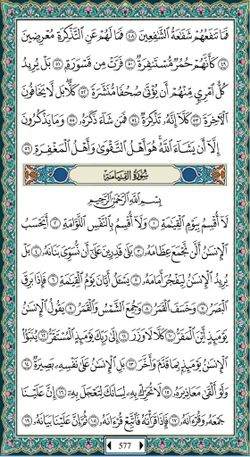 فَمَا تَنفَعُهُمْ شَفَٰعَةُ ٱلشَّٰفِعِينَ ٤٨ فَمَا لَهُمْ عَنِ ٱلتَّذْكِرَةِ مُعْرِضِينَ
٤٩ كَأَنَّهُمْ حُمُرٌ مُّسْتَنفِرَةٌ ٥٠ فَرَّتْ مِن قَسْوَرَةٍۭ ٥١ بَلْ يُرِيدُ
كُلُّ ٱمْرِئٍ مِّنْهُمْ أَن يُؤْتَىٰ صُحُفًا مُّنَشَّرَةً ٥٢ كَلَّا ۖ بَل لَّا يَخَافُونَ
ٱلْءَاخِرَةَ ٥٣ كَلَّآ إِنَّهُۥ تَذْكِرَةٌ ٥٤ فَمَن شَآءَ ذَكَرَهُۥ ٥٥ وَمَا يَذْكُرُونَ
إِلَّآ أَن يَشَآءَ ٱللَّهُ ۚ هُوَ أَهْلُ ٱلتَّقْوَىٰ وَأَهْلُ ٱلْمَغْفِرَةِ ٥٦
سُورَةُ القِيَامَةِ
بِسْمِ ٱللَّهِ ٱلرَّحْمَٰنِ ٱلرَّحِيمِ
لَآ أُقْسِمُ بِيَوْمِ ٱلْقِيَٰمَةِ ١ وَلَآ أُقْسِمُ بِٱلنَّفْسِ ٱللَّوَّامَةِ ٢ أَيَحْسَبُ
ٱلْإِنسَٰنُ أَلَّن نَّجْمَعَ عِظَامَهُۥ ٣ بَلَىٰ قَٰدِرِينَ عَلَىٰٓ أَن نُّسَوِّىَ بَنَانَهُۥ ٤ بَلْ
يُرِيدُ ٱلْإِنسَٰنُ لِيَفْجُرَ أَمَامَهُۥ ٥ يَسْـَٔلُ أَيَّانَ يَوْمُ ٱلْقِيَٰمَةِ ٦ فَإِذَا بَرِقَ
ٱلْبَصَرُ ٧ وَخَسَفَ ٱلْقَمَرُ ٨ وَجُمِعَ ٱلشَّمْسُ وَٱلْقَمَرُ ٩ يَقُولُ ٱلْإِنسَٰنُ
يَوْمَئِذٍ أَيْنَ ٱلْمَفَرُّ ١٠ كَلَّا لَا وَزَرَ ١١ إِلَىٰ رَبِّكَ يَوْمَئِذٍ ٱلْمُسْتَقَرُّ ١٢ يُنَبَّؤُا۟
ٱلْإِنسَٰنُ يَوْمَئِذٍۭ بِمَا قَدَّمَ وَأَخَّرَ ١٣ بَلِ ٱلْإِنسَٰنُ عَلَىٰ نَفْسِهِۦ بَصِيرَةٌ ١٤
وَلَوْ أَلْقَىٰ مَعَاذِيرَهُۥ ١٥ لَا تُحَرِّكْ بِهِۦ لِسَانَكَ لِتَعْجَلَ بِهِۦٓ ١٦ إِنَّ عَلَيْنَا
جَمْعَهُۥ وَقُرْءَانَهُۥ ١٧ فَإِذَا قَرَأْنَٰهُ فَٱتَّبِعْ قُرْءَانَهُۥ ١٨ ثُمَّ إِنَّ عَلَيْنَا بَيَانَهُۥ ١٩
577